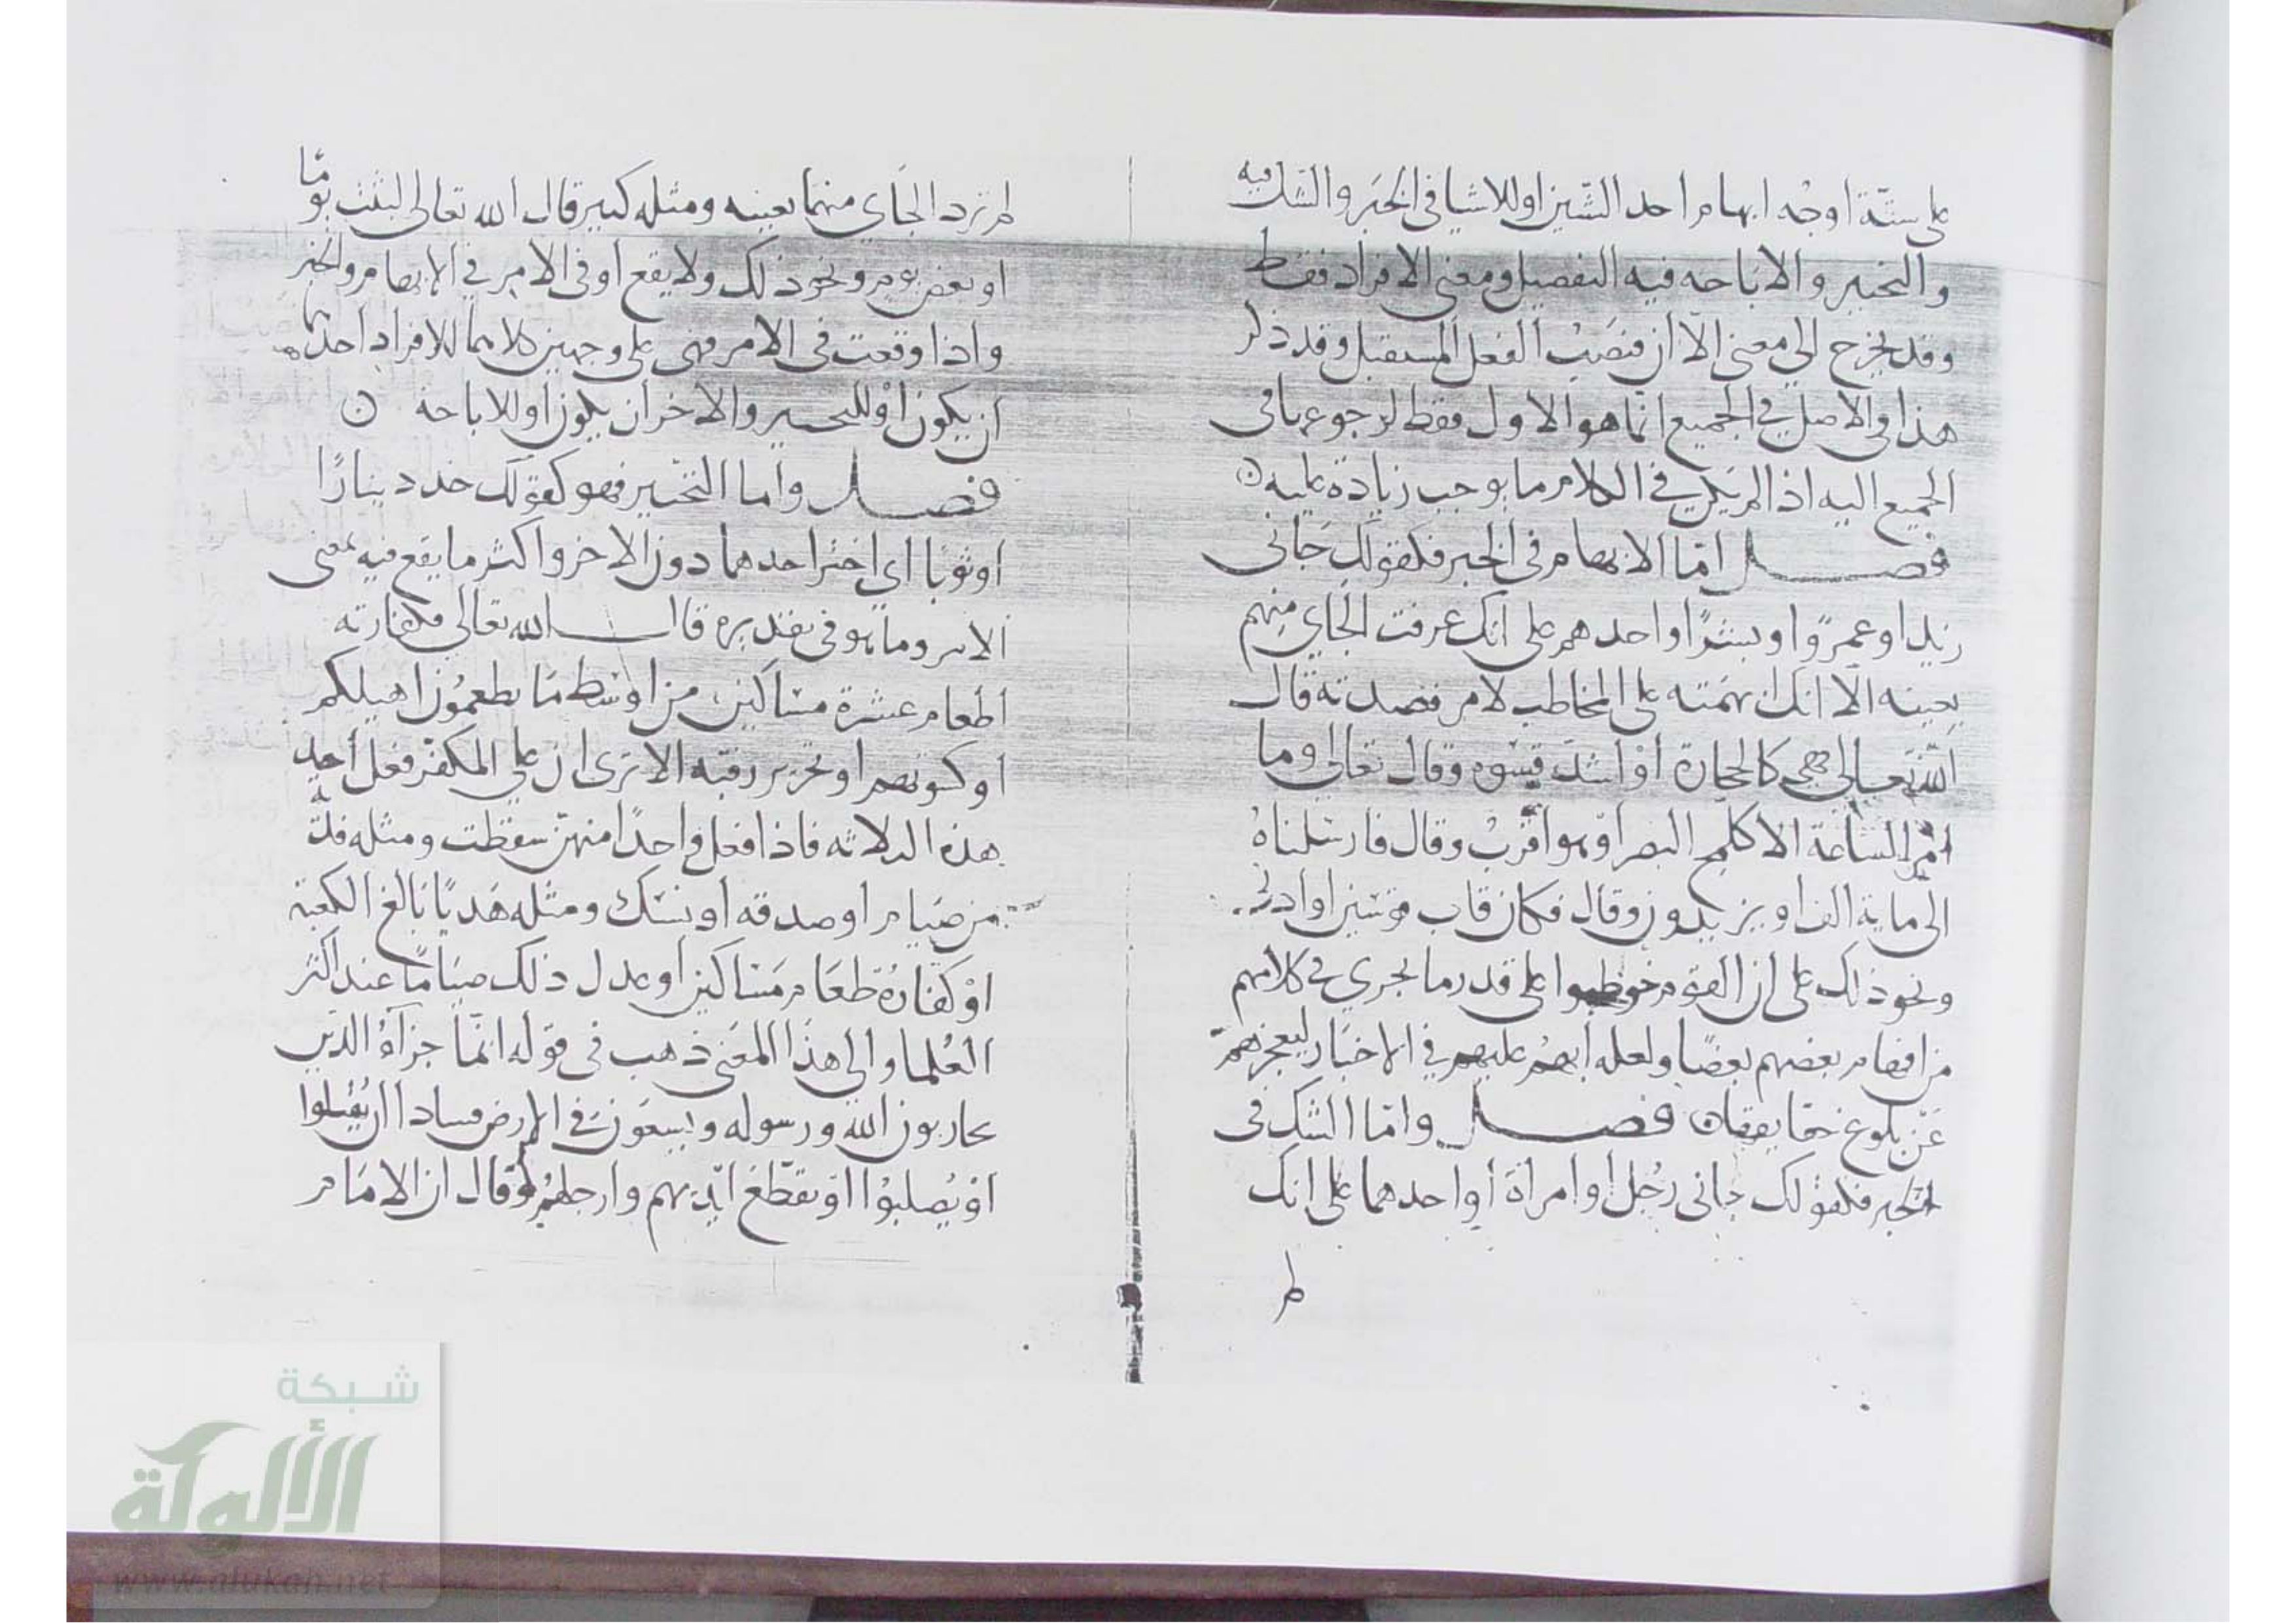 على ستة اوجه ابهام احد الشيين او للاشيا في الخبر والشك فيه
والتخيير والاباحه فيه التفصيل ومعنى الافراد فقط
وقد يخرج الى معنى الا ان فتصيب الفعل المستقبل وقد ذكر
هذا والاصل في الجميع انما هو الاول فقط لرجوع باقي
الجميع اليه اذ الم يكن في الكلام ما يوجب زيادة عليه ن
فصل امّا الابهام في الخبر فكقولك جانى
زيد او عمرو او بشر او احدهم على انك عرفت الجاي منهم
بعينه الّا انك ابهمته على المخاطب لامر قصدته قال
الله تعالى فهي كالحجارة أوْ اشد قسوه وقال تعالى وما
امر الساعة الا كلمح البصر اوْ هو اقرب وقال فارسلناهُ
الى ماية الف او يزيدون وقال فكان قاب قوسين او ادنى
ونحو ذلك على ان القوم خوطبوا على قدر ما يجري في كلامهم
من افهام بعضهم بعضًا ولعله أبهم عليهم في الاخبار ليعجزهم
عَن بلوغ حقايقها ن فصل وامّا الشك في
الخبر فكقولك جانى رُجل أو امراة أو احدهما على انك
لم
لم ترد الجَاي منهما بعينه ومثله كبير قال الله تعالى لبثت يومًا
او بعض يوم ونحو ذلك ولا يقع او في الامر في الابهام والخبر
واذا وقعت في الامر فهى على وجهين كلاهما للافراد احدهما
ان يكون أوْ للتخيير والاخر ان يكون او للاباحة ن
فصل واما التخيير فهو كقولك خد دينارًا
او ثوبًا اي اختر احدهما دون الاخر واكثر ما يقع فيه بمعنى
الامر وما هو في تقديره قال الله تعالى فكفارته
اطعام عشرة مساكين من اوسط ما تطعمون اهليكم
أو كسوتهم او تحرير رقبه الا ترى ان على المكفّر فعل أحد
هذه الثلاثه فاذا فعل واحدًا منهنّ سقطت ومثله فديَة
من صيام او صدقه أو نسك ومثله هَديًا بَالغ الكعبة
اوْ كفارةُ طعَام مَساكين أو عدل ذلك صيَامًا عند اكثر
العُلما والى هذا المعَنى ذهب في قوله انمّا جزآؤُ الذين
يحاربون الله ورسوله ويسعَون في الارض فسادا ان يُقتلوا
اوْ يُصلبوْا اوْ تقطّع ايديهم وارجلهم وقال ان الامَام
شبكة
الألوكة
www.alukah.net